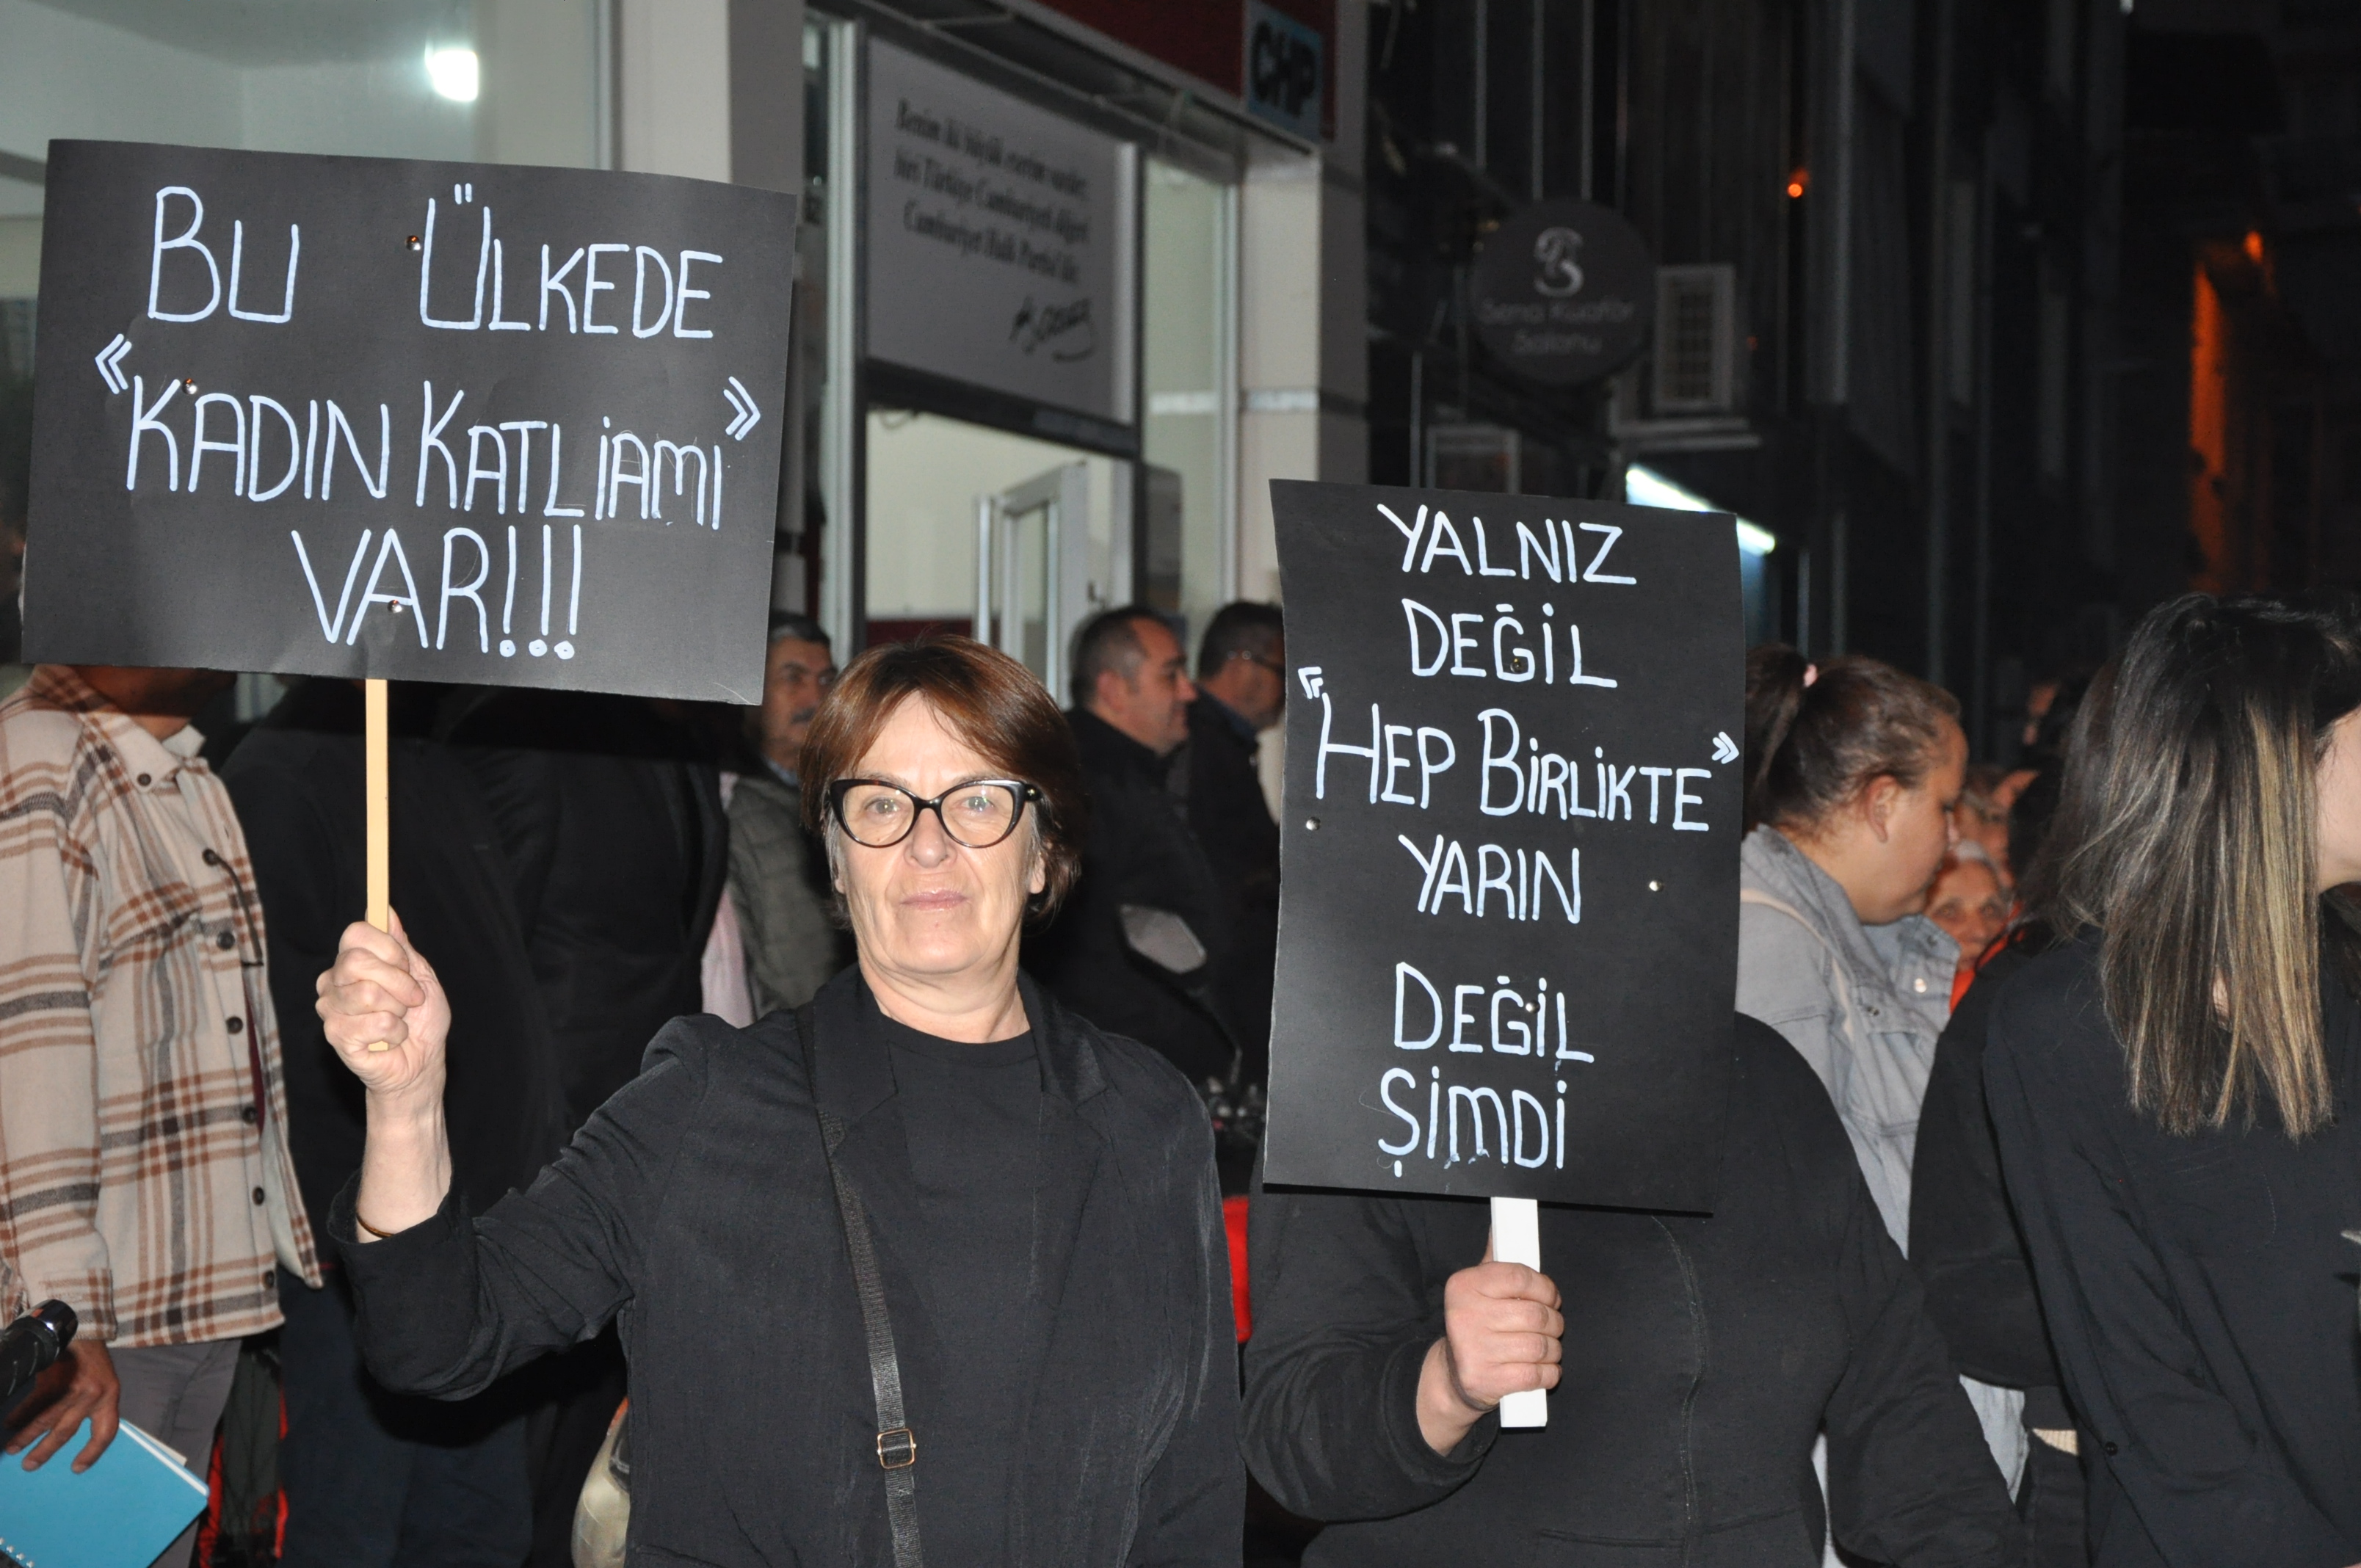 BU ÜLKEDE
«KADIN KATLİAMI»
VAR!!!
YALNIZ
DEĞİL
«HEP BİRLİKTE»
YARIN
DEĞİL
ŞİMDİ
CHP
Benim iki büyük eserim vardır;
biri Türkiye Cumhuriyeti diğeri
Cumhuriyet Halk Partisi'dir.
Sena Kuaför
Salonu